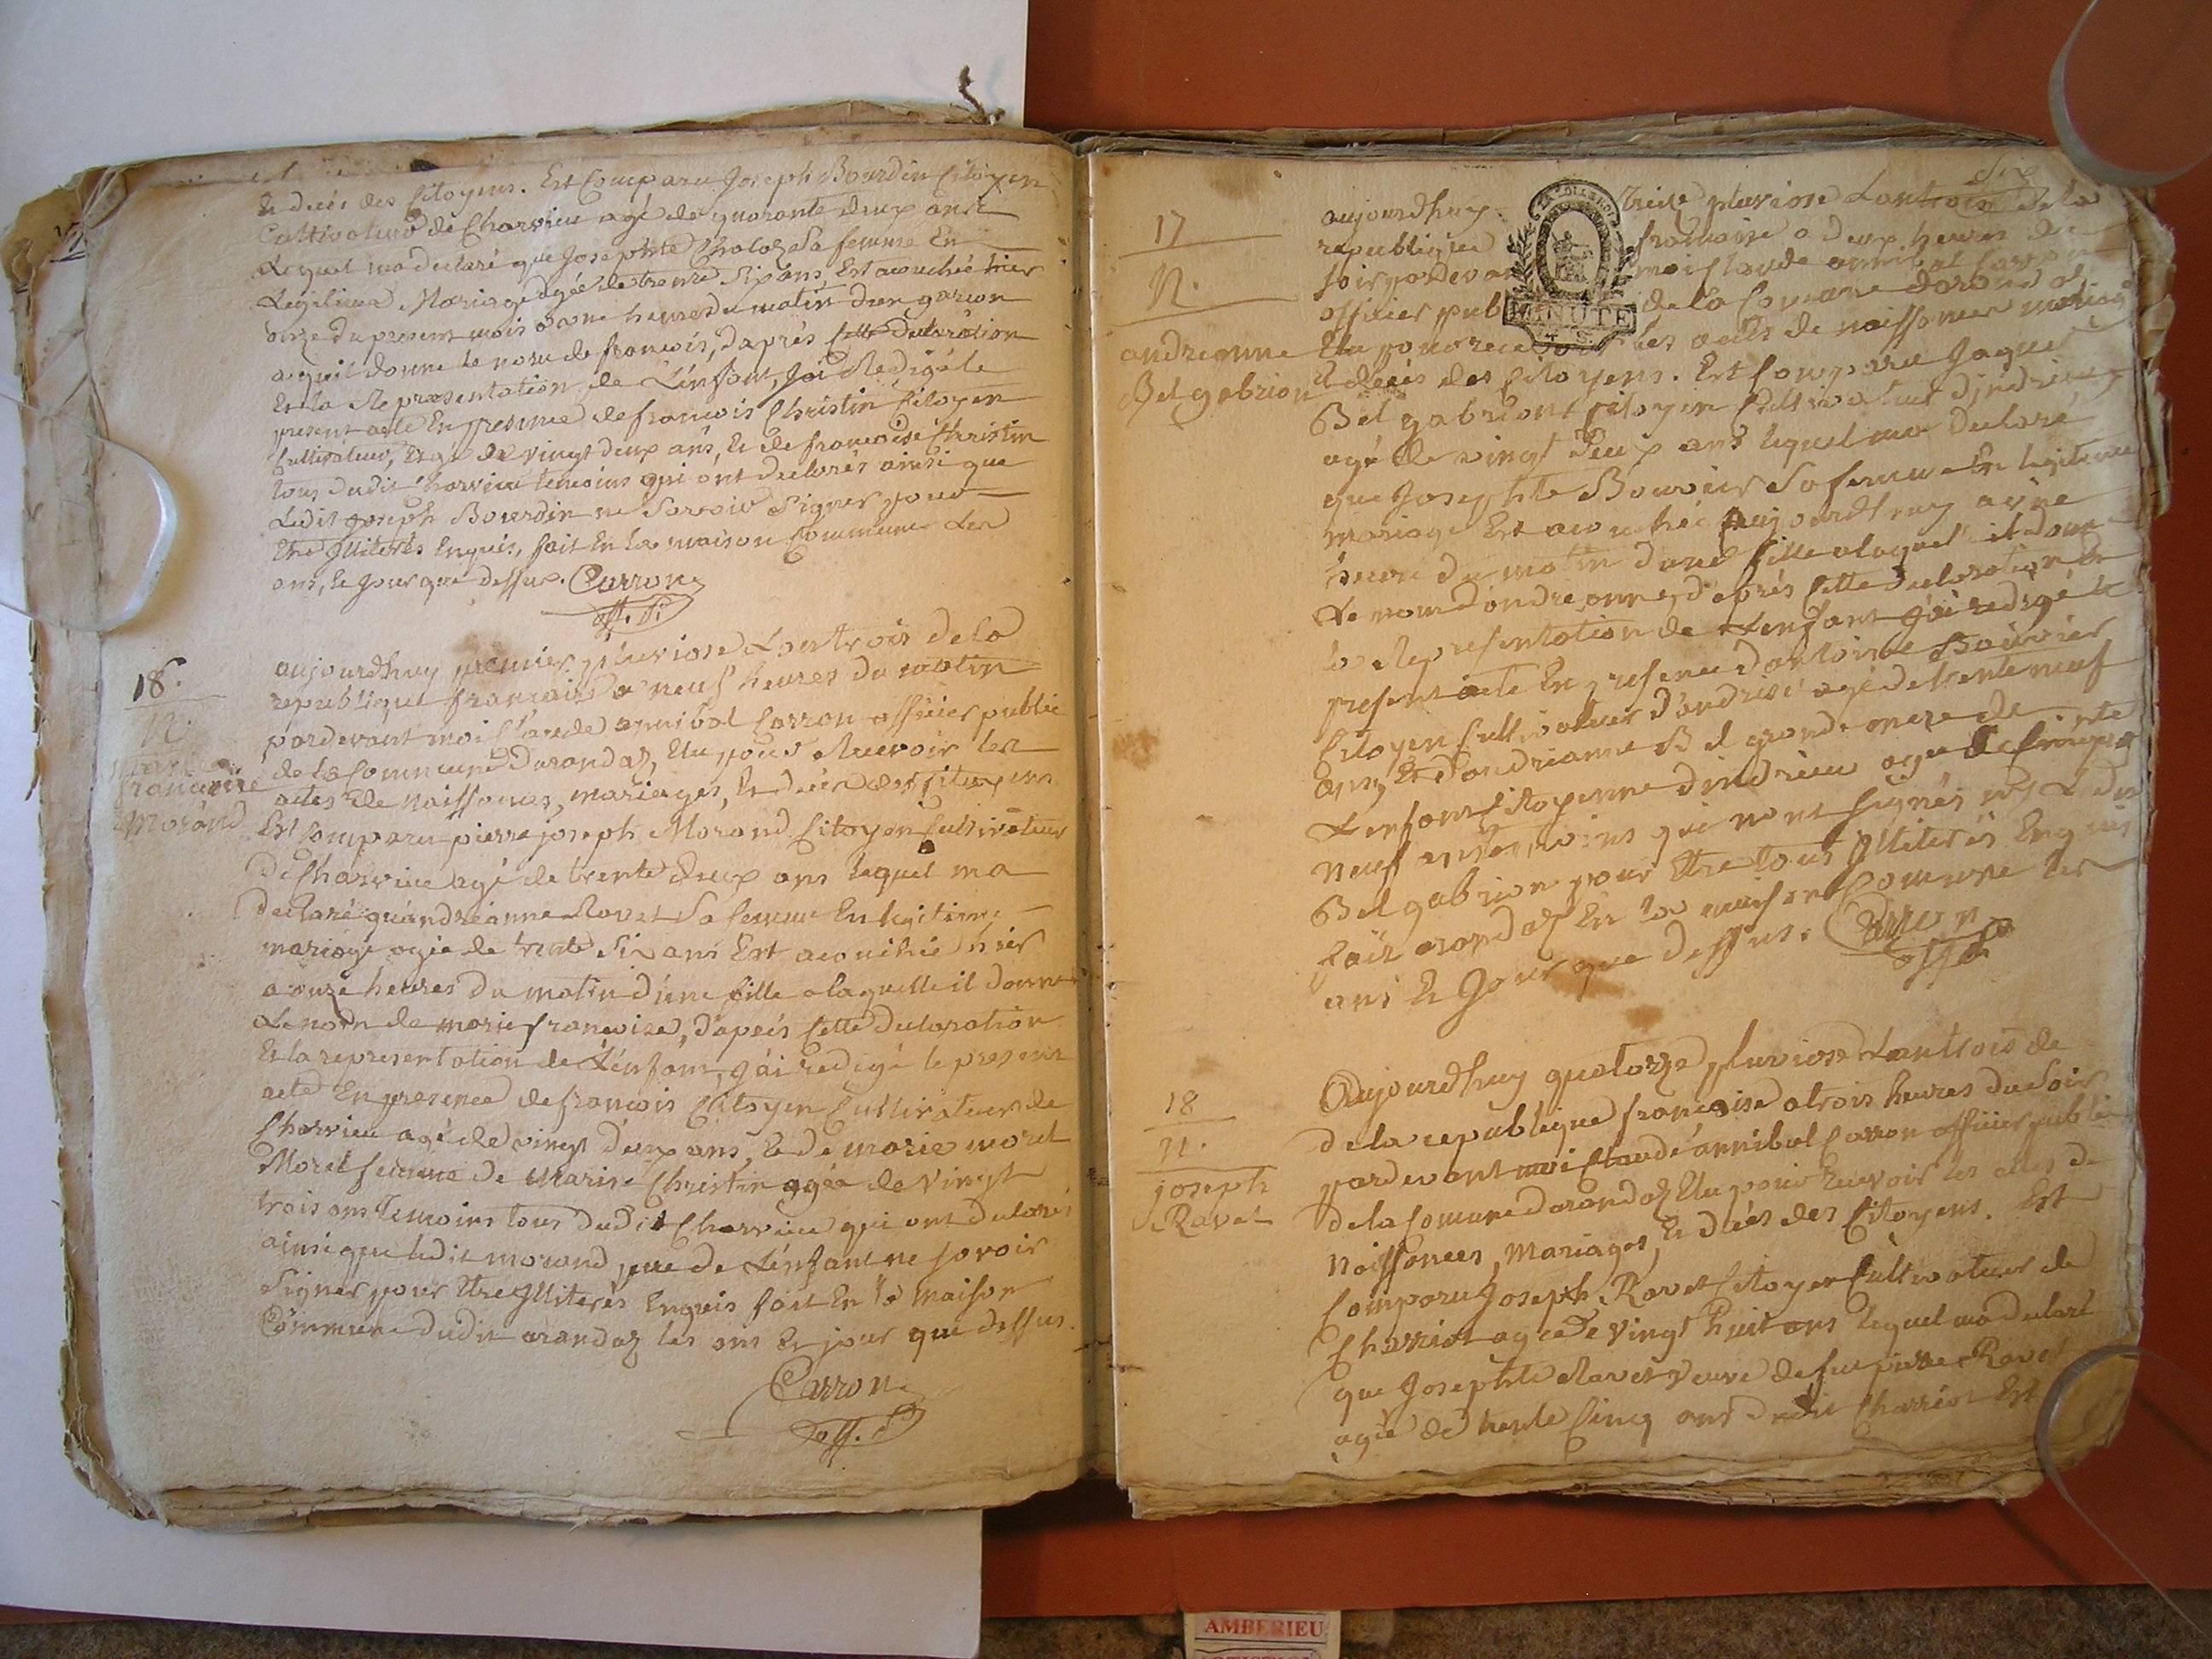 & décès des Citoyens. Est Comparu Joseph Bourdin Citoyen
Cultivateur de Charvieu agé de quarante deux ans
Lequel ma declaré que Josephte sa femme En
Legitime Mariage agée de trente Six ans Est acouchée hier
onze du present mois a onne heures du matin d'un garcon
a qui il donne le nom de francois, dapres Cette declaration
Et la Représentation de L'enfant, Jai Redigé le
present acte En presence de francois Christin Citoyen
Cultivateur, agé de vingt deux ans, & de francoise Christin
tous dudit Charvieu temoins qui ont declarés ainsi que
Ledit Joseph Bourdin ne Savoir Signer pour
Etre Illiterés Enquis, fait En la maison Commune Les
ans, le Jour que dessus. Carron
off. P.
18.
N.
Marie
francoise
Morand
aujourdhuy premier pluviose L'an trois de la
republique francoise a neuf heures du matin
pardevant moi Claude annibal Carron officier public
de la Commune Darandaz, Elu pour Recevoir les
actes de Naissances, mariages, & décès des Citoyens
Est Comparu pierre joseph Morand Citoyen Cultivateur
De Charvieu agé de trente deux ans lequel ma
declaré qu'andréanne Ravet Sa femme En legitime
mariage agée de trente Six ans Est acouchée hier
a onze heures du matin d'une fille a laquelle il donne
Le nom de marie francoise, d'après Cette declaration
Et la representation de L'enfant, j'ai redigé le present
acte En presence de francois Citoyen Cultivateur de
Charvieu agé de vingt deux ans, & de marie morel
Morel femme de Marin Christin agée de vingt
trois ans temoins tous dudit Charvieu qui ont declarés
ainsi que ledit morand pere de L'enfant ne Savoir
Signer pour Etre Illiterés Enquis fait En la Maison
Commune dudit arandaz les ans & jour que dessus.
Carron
off. P
Six
17
N.
andreanne
Bel gabrion
aujourdhuy treize pluviose Lan trois de la
republique francoise a deux heures de
soir pardevant moi Claude annibal Carron
officier public de la Comune darandaz
Elu pour recevoir les actes de naissances mariages
& décès des Citoyens. Est Comparu Jaques
Bel gabriont Citoyen Cultivateur d'indrieu
agé de vingt deux ans lequel ma declaré
que Josephte Bouvier Sa femme En legitime
mariage Est acouchée aujourdhuy a une
heure du matin d'une fille a laquel il done
Le nom d'andreanne, d'après Cette declaration &
la Representation de L'enfant j'ai redigé le
present acte En presence d'antoine Bouvier
Citoyen Cultivateur d'indrieu agé de trente neuf
ans, & d'andrianne Bel grande mere de
L'enfant Citoyenne dindrieu agée de Cinquante
neuf ans temoins qui n'ont Signés ny Le dit
Bel gabrion pour Etre tous Illiterés Enquis
fait arandaz En la maison Comune les
ans & Jour que dessus. Carron
off. P
MINUTE
18
N.
joseph
Ravet
Aujourdhuy quatorze pluviose Lan trois de
de la republique francoise a trois heures du Soir
pardevant moi Claude annibal Carron officier public
de la Comune darandaz Elu pour Recevoir les actes de
Naissances, Mariages, & décès des Citoyens. Est
Comparu Joseph Ravet Citoyen Cultivateur de
Charriot agée de vingt huit ans lequel ma declaré
que Josephte Ravet Veuve de feu pierre Ravet
agée de trente Cinq ans dudit Charriot Est
AMBERIEU